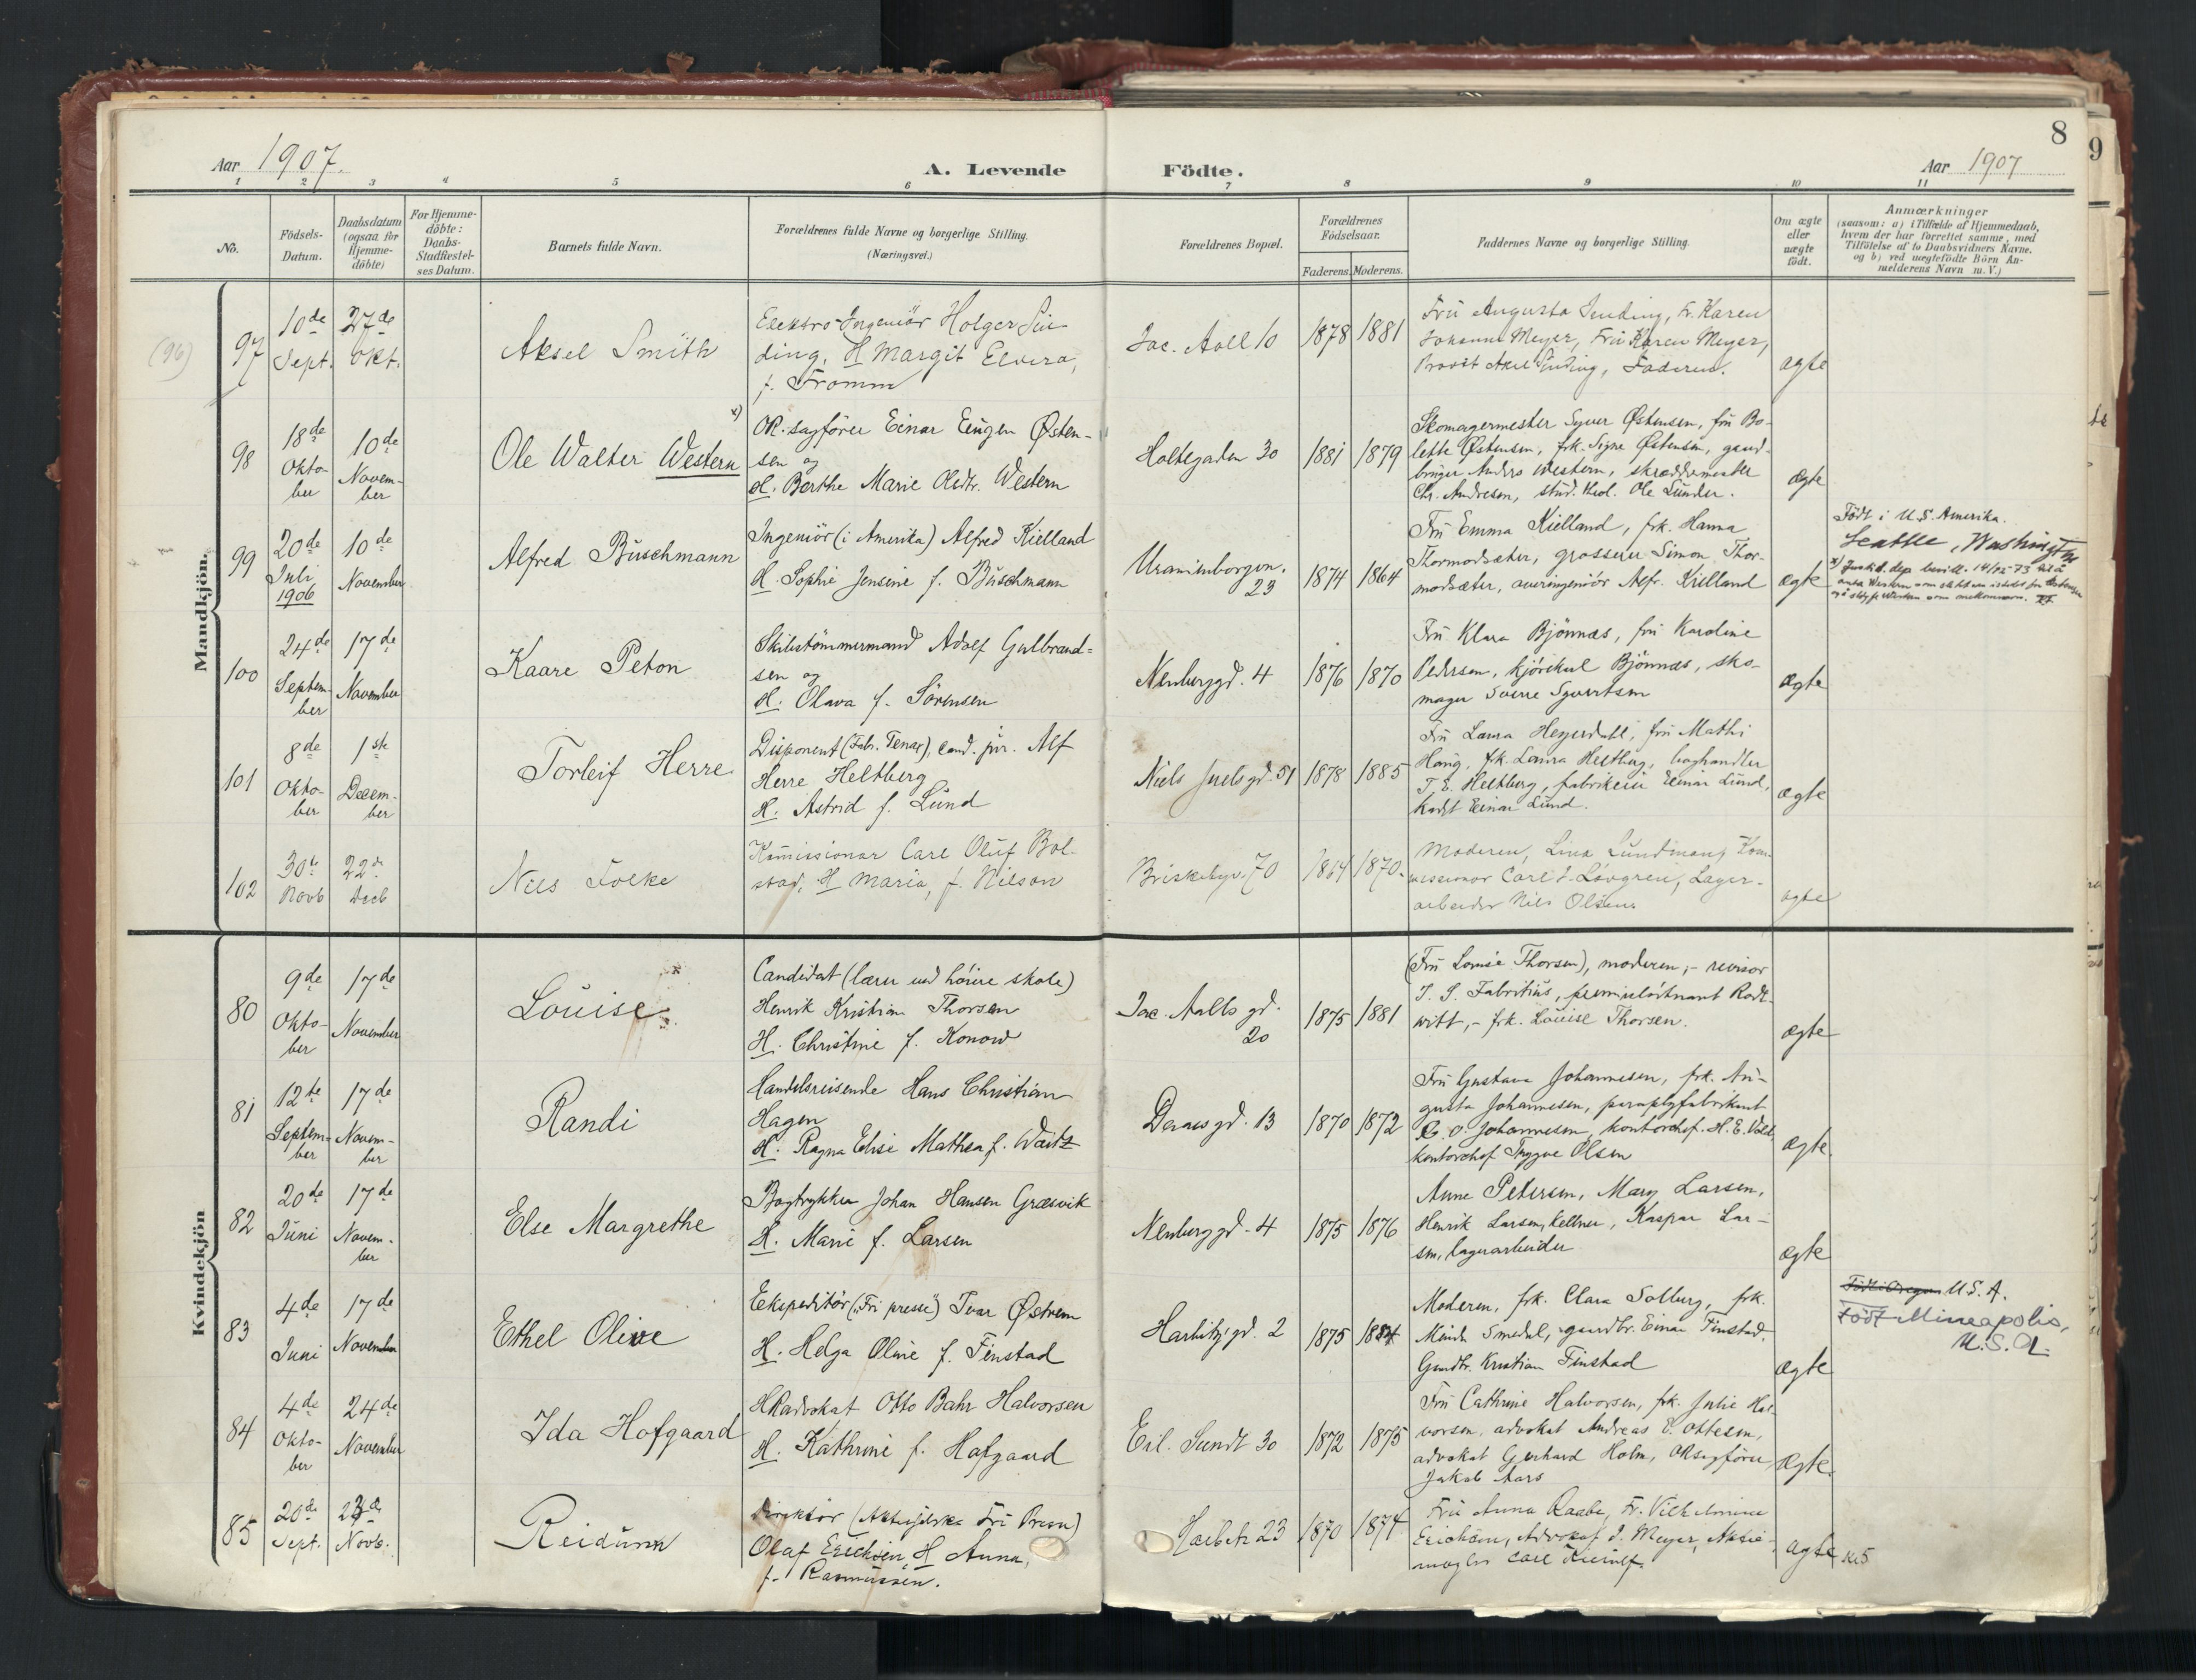 8
9
Aar 1907.
A. Levende
Födte.
Aar 1907
1 2 3 4 5 6 7 8 9 10 11
No.
Födsels-
Datum.
Daabsdatum
(ogsaa for
Hjemme-
döbte)
For Hjemme-
döbte:
Daabs-
Stadfæstel-
ses Datum.
Barnets fulde Navn.
Forældrenes fulde Navne og borgerlige Stilling.
(Næringsvei.)
Forældrenes Bopæl.
Forældrenes
Födselsaar.
Faderens. Moderens.
Faddernes Navne og borgerlige Stilling.
Om ægte
eller
uægte
födt.
Anmærkninger
(saasom: a) i Tilfælde af Hjemmedaab,
hvem der har forrettet samme, med
Tilföielse af to Daabsvidners Navne.
og b) ved uægtefödte Börn An-
melderens Navn m. V.)
Mandkjön.
(96)
97
10de
Sept.
27de
Okt.
Aksel Smith
Elektro-Ingeniör Holger Sin-
ding, H Margit Elvira,
f. Fromm
Jac. Aall 10
1878
1881
Fru Augusta Sinding, Fr. Karen
Johanne Meyer, Fru Karen Meyer,
Provst Axel Sinding, Faderen.
ægte
98
18de
Okto-
ber
10de
Novem-
ber
Ole Walter Western
x)
OR. sagförer Einar Eugen Østen-
sen og
H. Berthe Marie Olsdtr. Western
Holtegaden 30
1881
1879
Skomagermester Syver Østensen, fru Bo-
lette Østensen, frk. Signe Østensen, gaard-
bruger Anders Western, skræddermester
Chr. Andresen, stud. theol. Ole Sunder.
ægte
99
20de
Juli
1906
10de
November
Alfred Buschmann
Ingeniör (i Amerika) Alfred Kielland
H. Sophie Jensine f. Buschmann
Uranienborgvn.
23
1874
1864
Fru Emma Kielland, frk. Hanna
Thormodsæter, grosserer Simon Thor-
modsæter, overingeniör Alfr. Kielland
ægte
Födt i U.S. Amerika.
Seattle, Washington
x) Justisd. dep. bevill. 14/12 73 til å
anta Western som slektsnavn istedet for Østensen
100
24de
Septem-
ber
17de
November
Kaare Peton
Skibstömmermand Adolf Gulbrand-
sen og
H. Olava f. Sörensen
Neuberggd. 4
1876
1870
Fru Klara Bjönnæs, fru Karoline
Pedersen, kjörekarl Bjönnæs, sko-
mager Sverre Syvertsen
ægte
101
8de
Okto-
ber
1ste
Decem-
ber
Torleif Herre
Disponent (Fabr. Tenax), cand. jur. Alf
Herre Heltberg
H. Astrid f. Lund
Niels Juels gd. 51
1878
1885
Fru Laura Heyerdahl, fru Mathi
Haug, frk. Laura Heltberg, boghandler
T. E. Heltberg, fabrikeier Einar Lund,
kadet Einar Lund.
ægte
102
30te
Novb
22de
Decb
Nils Folke
Kommissionær Carl Oluf Bol-
stad, H Maria, f. Nilson
Briskebyv. 70
1864
1870.
Moderen, Lina Lundmann, Kom-
missionær Carl J. Lövgren, Lager-
arbeider Nils Olsen.
ægte
Kvindekjön
80
9de
Okto-
ber
17de
November
Louise
Candidat (lærer ved höiere skole)
Henrik Kristian Thorsen
H. Christine f. Konow
Jac. Aalls gd.
20
1875
1881
(Fru Louise Thorsen), moderen, - revisor
J. S. Fabritius, premierlöitnant Rodt-
witt, - frk. Louise Thorsen.
ægte
81
12te
Septem-
ber
17de
Novem-
ber
Randi
Handelsreisende Hans Christian
Hagen
H. Ragna Elise Mathea f. Waitz
Daaes gd. 13
1870
1872
Fru Gustava Johannesen, frk. Au-
gusta Johannesen, paraplyfabrikant
O. Johannesen, kontorchef H. E.
kontorchef Trygve Olsen
ægte.
82
20de
Juni
17de
Novem-
ber
Else Margrethe
Bogtrykker Johan Hansen Græsvik
H. Marie f. Larsen
Neuberg gd. 4
1875
1876
Anne Petersen, Mary Larsen,
Henrik Larsen, kellner, Kaspar Lar-
sen, lagerarbeider
ægte
83
4de
Juni
17de
November
Ethel Olive
Ekspeditör („Fri presse") Ivar Østrem
H. Helga Oline f. Finstad
Harbitz' gd. 2
1875
1884
Moderen, frk. Clara Solberg, frk.
Minda Smedal, gaardbr. Einar Finstad,
Gaardbr. Kristian Finstad
ægte
Födt i Oregon U.S.A.
Födt Mineapolis,
U.S.A.
84
4de
Okto-
ber
24de
November
Ida Hofgaard
HRadvokat Otto Bahr Halvorsen
H. Kathrine f. Hofgaard
Eil. Sundt 30
1872
1875
Fru Cathrine Halvorsen, frk. Julie Hal-
vorsen, advokat Andreas E. Ottesen,
advokat Gerhard Holm, ORsagförer
Jakob Aars
ægte.
85
20de
Sept.
23de
Novb.
Reidunn
Direktör (Aktietrykk. Fri Presse)
Olaf Erichsen, H Anna,
f. Rasmussen.
Harbitz 23
1870
1874
Fru Anna Raabe, Fr. Vilhelmine
Erichsen, Advokat J. Meyer, Aktie-
mægler Carl
ægte